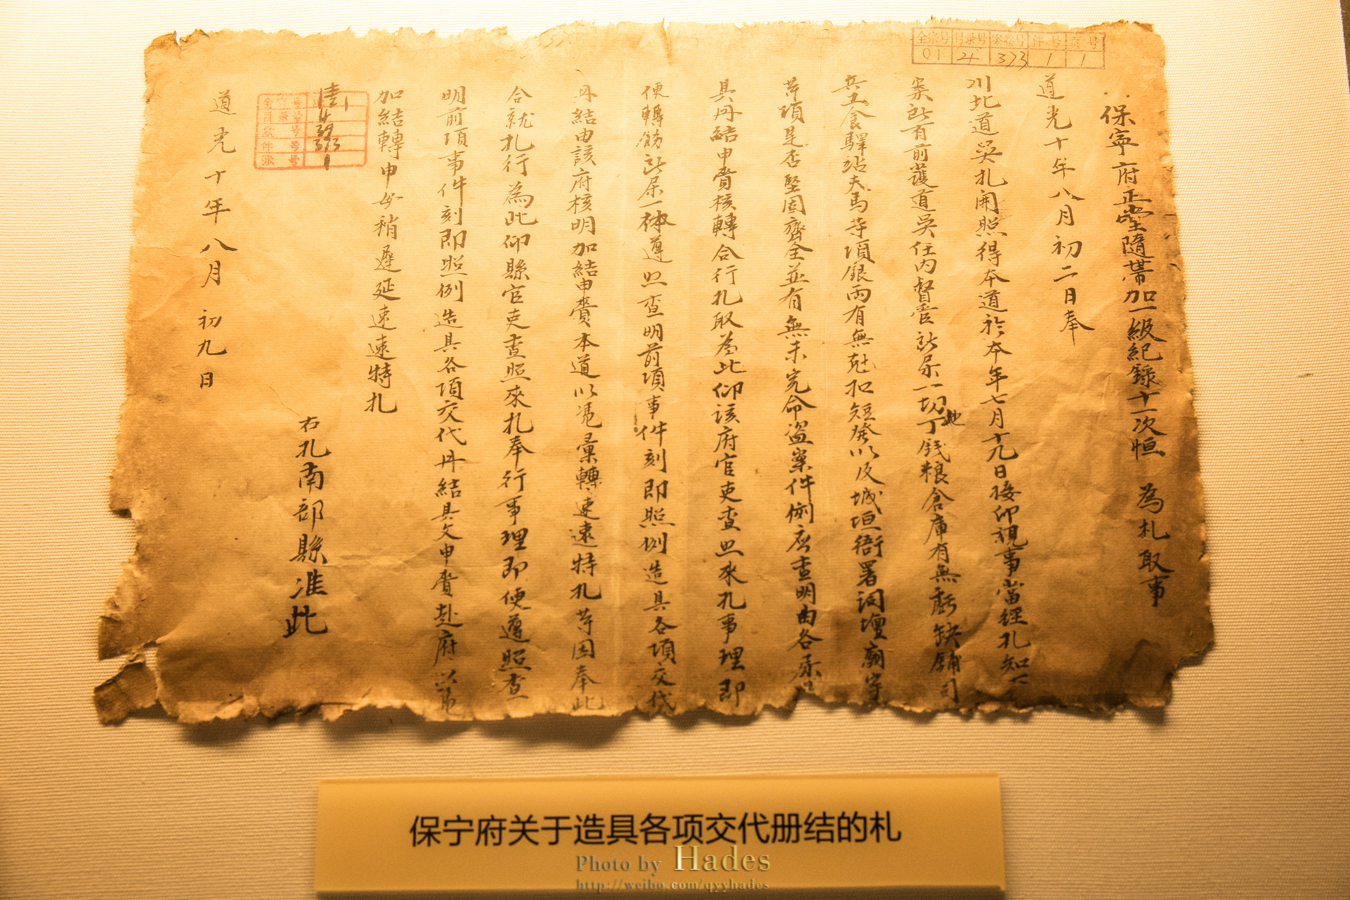 保寧府正堂隨帶加一級紀錄十一次恒 為札取事
道光十年八月初二日奉
川北道吳札開照得本道於本年七月十九日接印視事當經札知
案所有前護道吳任內督管所屬一切地丁錢糧倉庫有無虧缺鋪司
兵工食驛站夫馬等項銀兩有無尅扣短發以及城垣衙署祠壇廟宇
等項是否堅固齊全並有無未完命盜案件例應查明由各
具冊結申賫核轉合行札取為此仰該府官吏查照來札事理即
便轉飭所屬一体遵照查明前項事件刻即照例造具各項交代
冊結由該府核明加結申賫本道以憑彙轉速速特札等因奉此
合就札行為此仰縣官吏查照來札奉行事理即便遵照查
明前項事件刻即照例造具各項交代冊結具文申賫赴府以
加結轉申毋稍遲延速速特札
右札南部縣准此
道光十年八月初九日
全宗号 目录号 案卷号 件号 张号
01 4 393 1 1
保宁府关于造具各项交代册结的札
Photo by Hades
http://weibo.com/qyyhades